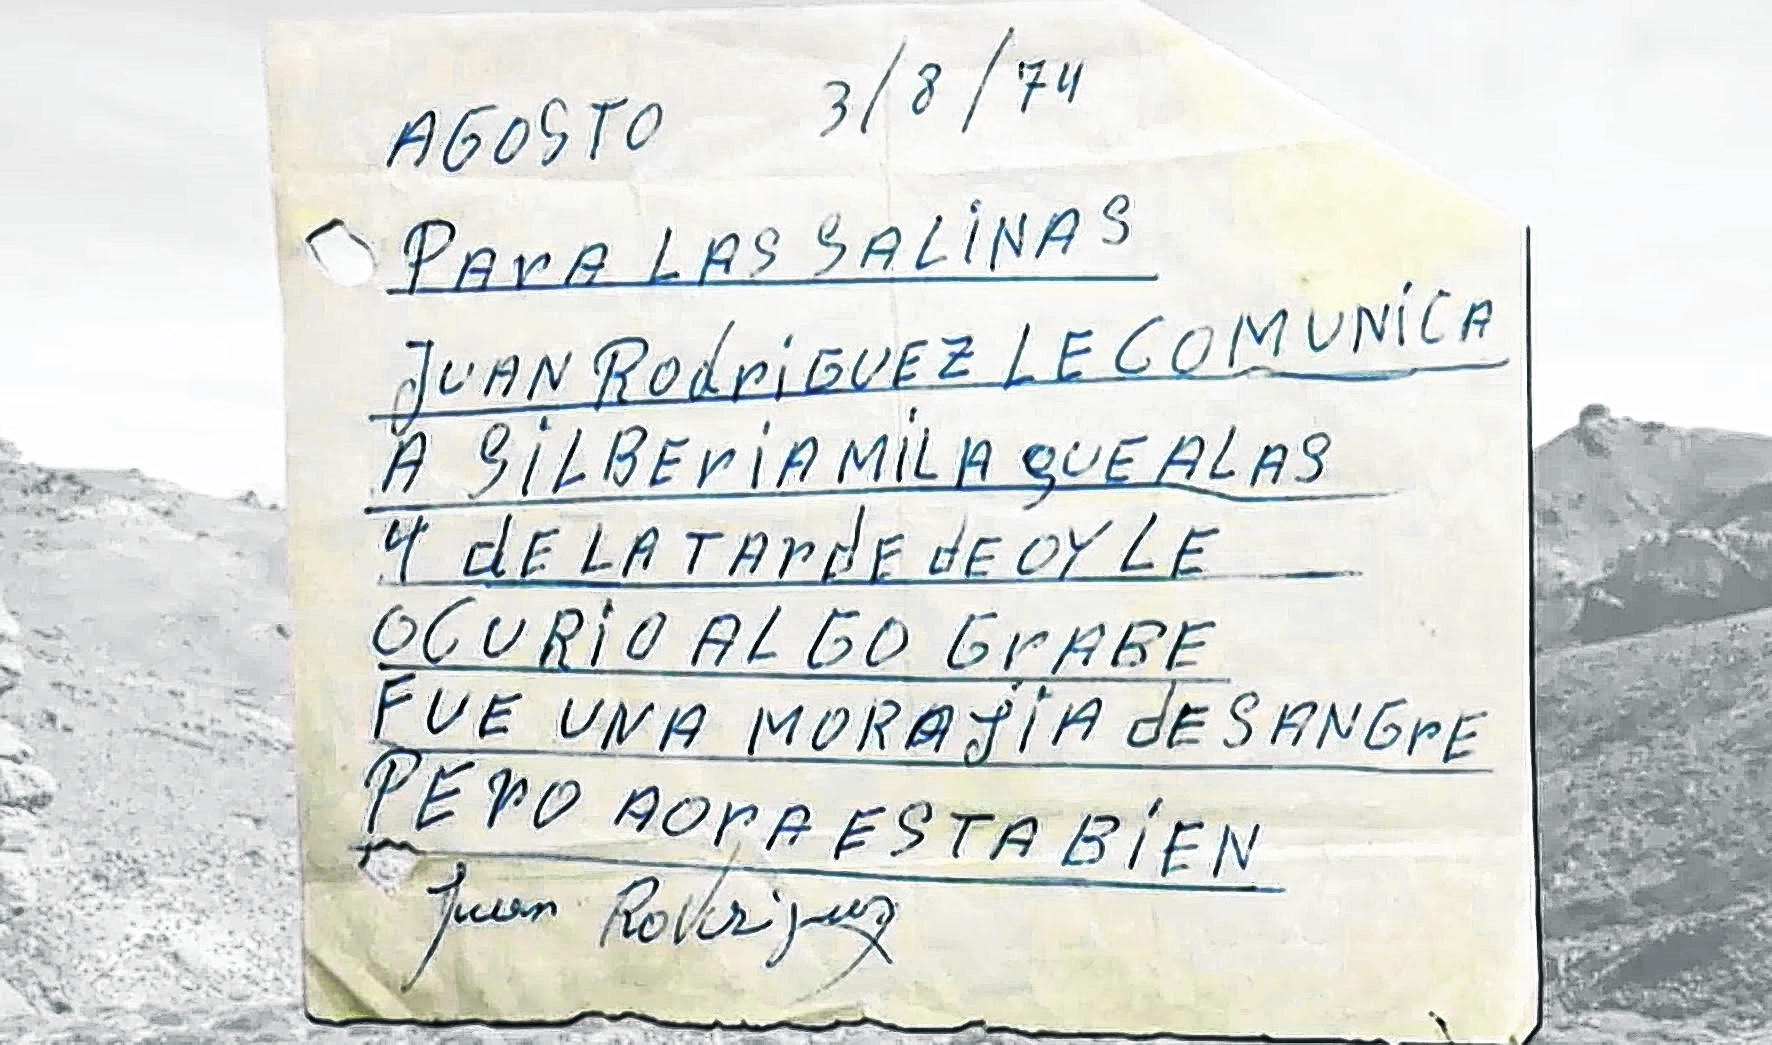 AGOSTO 3/8/74
PArA LAS SALiNAS
JUAN RodriGUEZ LE COMUNiCA
A SiLBEriA MiLA QUE A LAS
4 dE LA TArdE dE OY LE
OCURiO ALGO GrABE
FUE UNA MORAJiA dE SANGrE
PErO AOrA ESTA BiEN
Juan Rodriguez